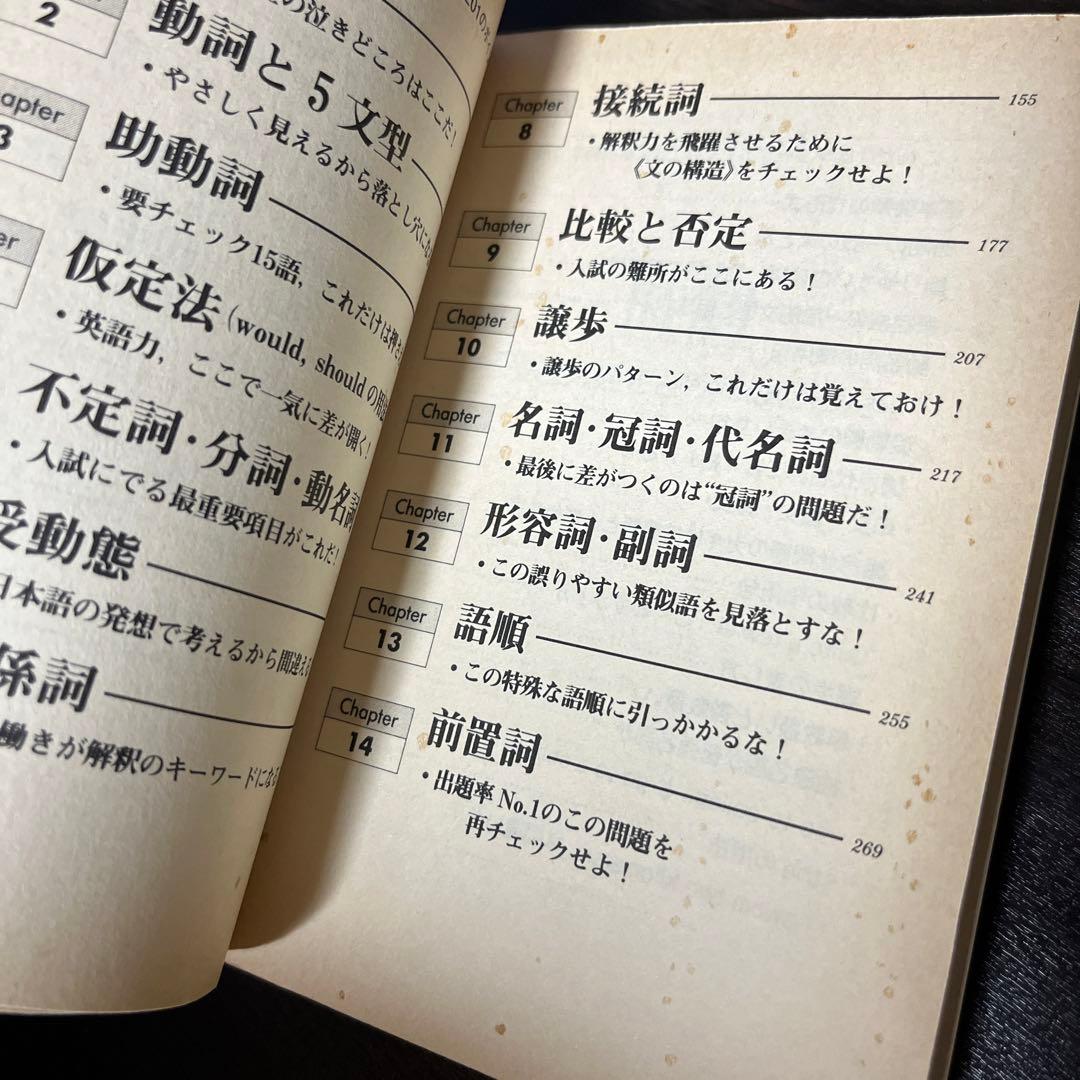 2
の泣きどころはここだ！
動詞と5文型
・やさしく見えるから落とし穴に
Chapter
3
助動詞
・要チェック15語，これだけは押さ
仮定法(would, shouldの用法
・英語力，ここで一気に差が開く！
不定詞・分詞・動名詞
・入試にでる最重要項目がこれだ！
受動態
日本語の発想で考えるから間違える
係詞
働きが解釈のキーワードになる
Chapter 8 接続詞 155
・解釈力を飛躍させるために
《文の構造》をチェックせよ！
Chapter 9 比較と否定 177
・入試の難所がここにある！
Chapter 10 譲歩 207
・譲歩のパターン，これだけは覚えておけ！
Chapter 11 名詞・冠詞・代名詞 217
・最後に差がつくのは“冠詞”の問題だ！
Chapter 12 形容詞・副詞 241
・この誤りやすい類似語を見落とすな！
Chapter 13 語順 255
・この特殊な語順に引っかかるな！
Chapter 14 前置詞 269
・出題率 No.1のこの問題を
再チェックせよ！